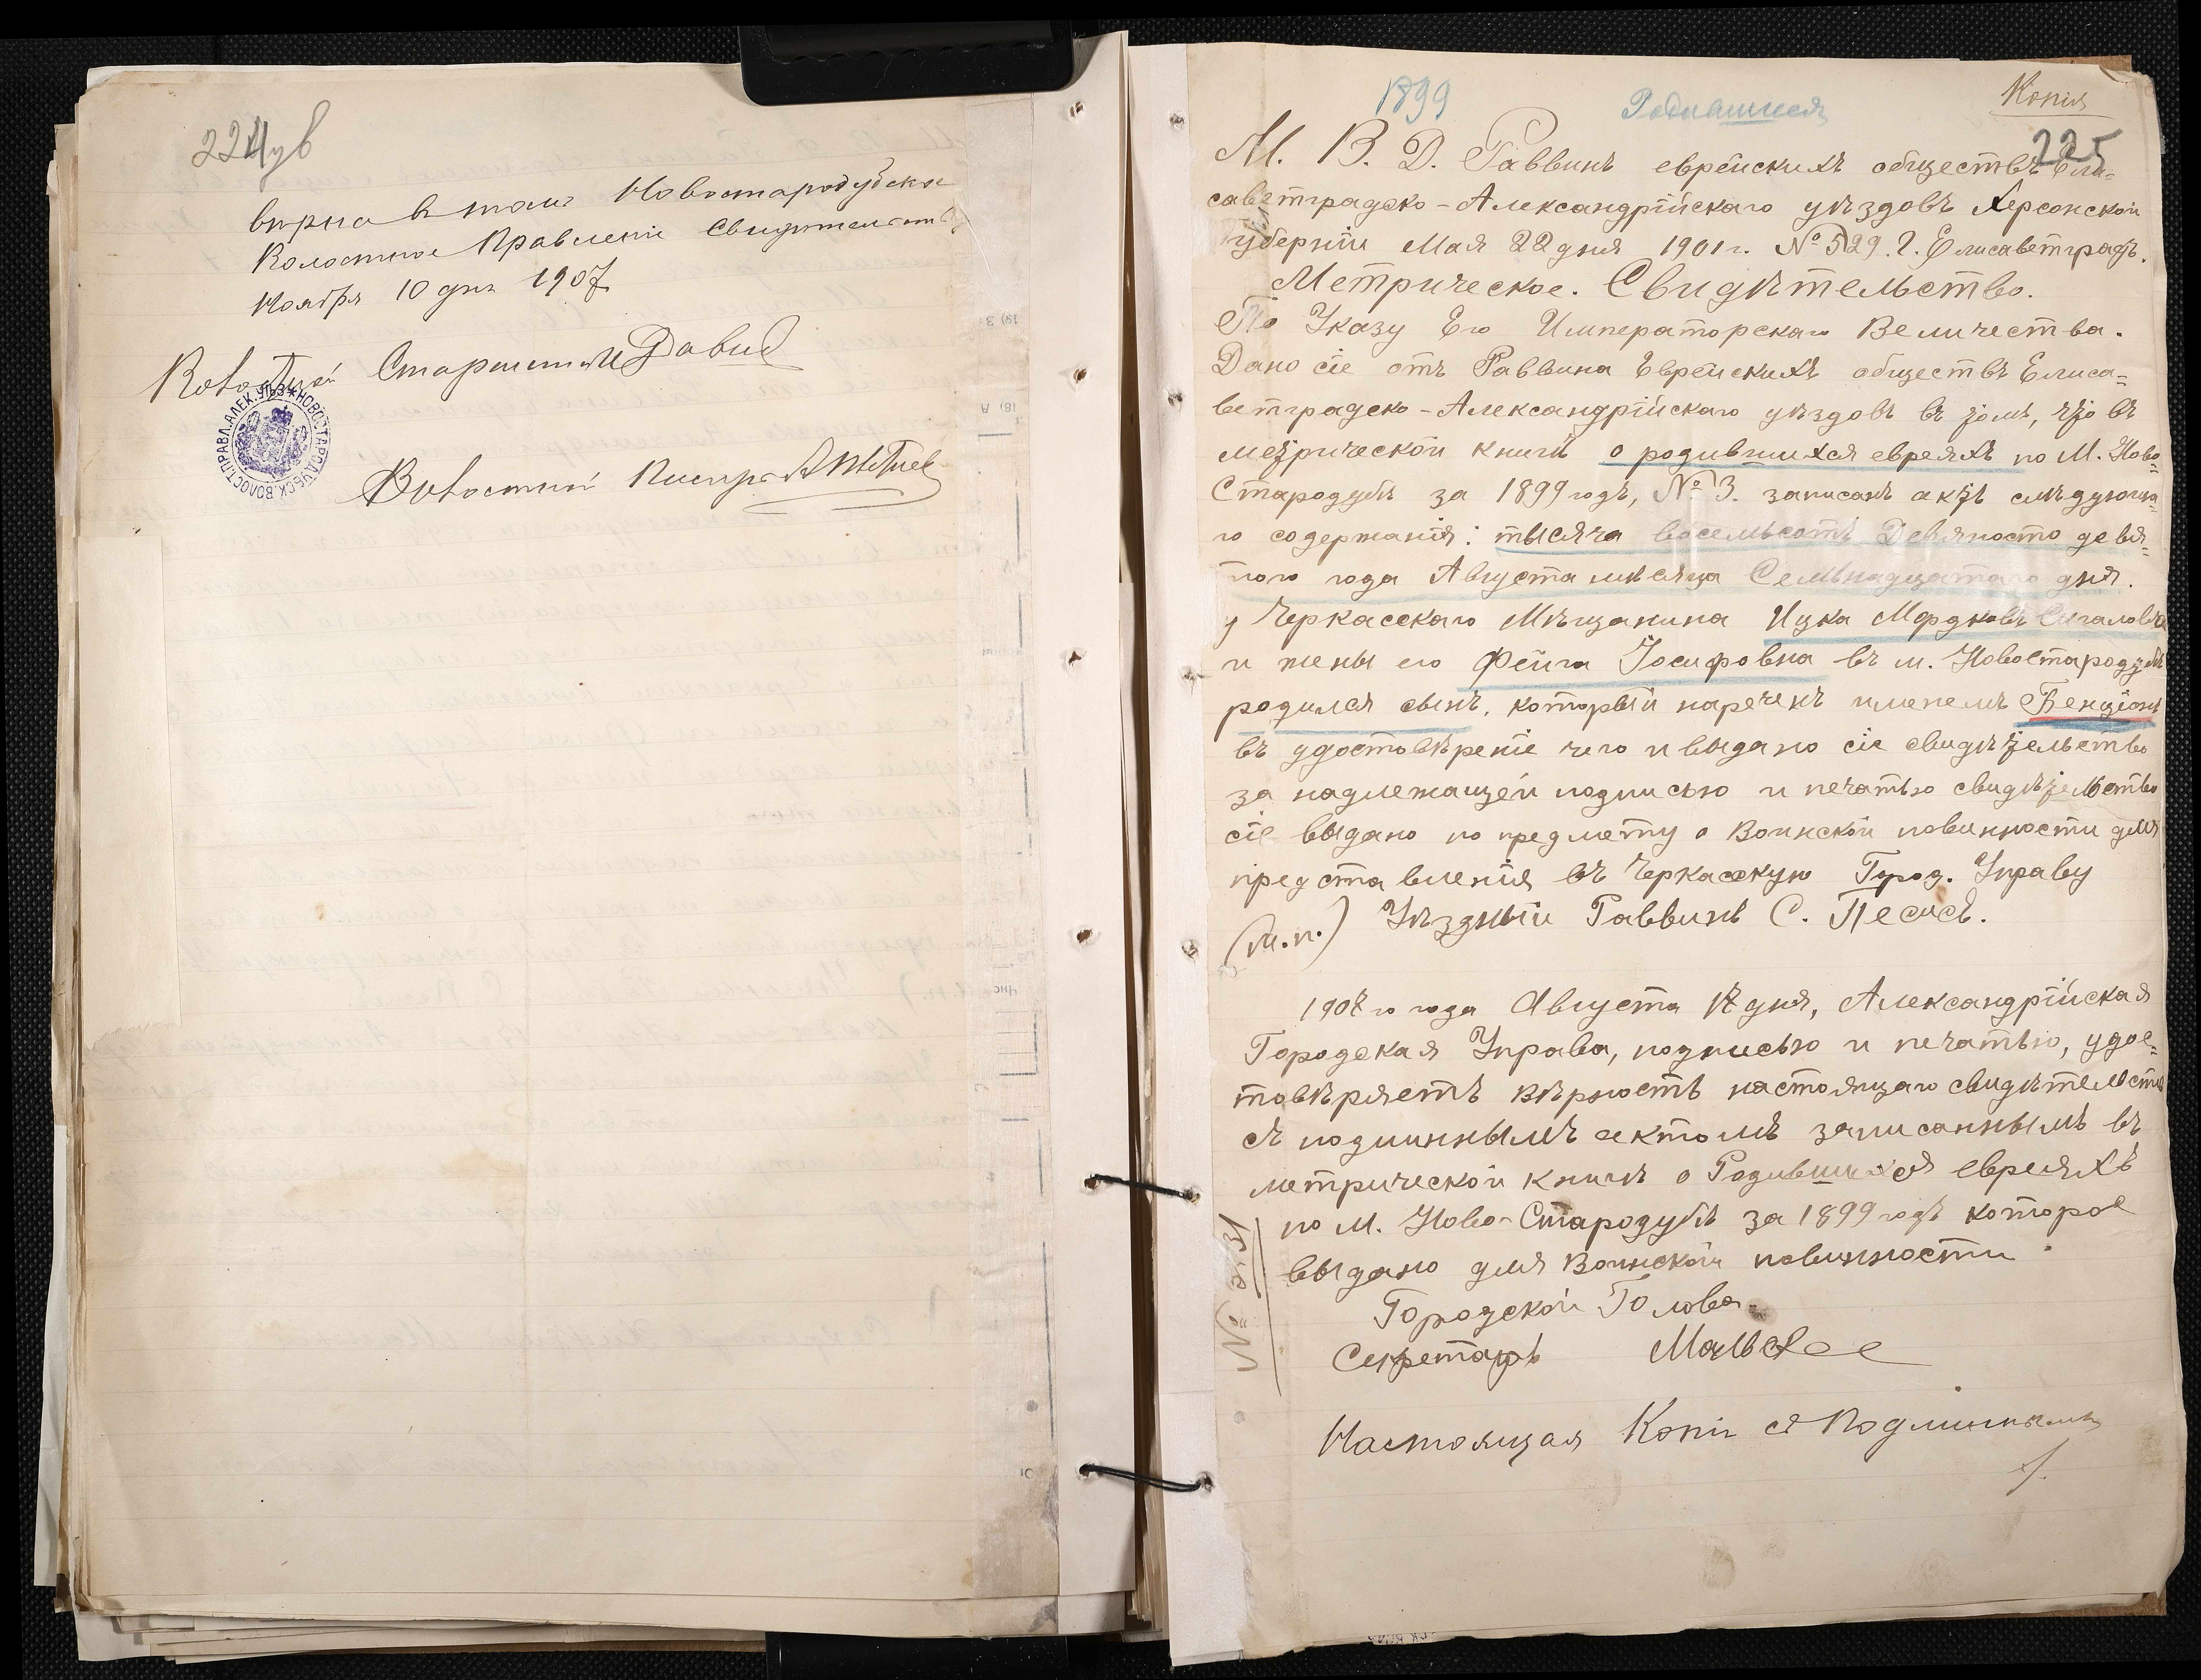 224 зв
вѣрна в томъ Новостародубское
Волостное Правленіе Свидѣтельств
Ноября 10 дня 1907
Волостной Старшина Давид
НОВОСТАРОДУБСК. ВОЛОСТ. ПРАВЛ. АЛЕК. УѢЗ.
Волостной Писарь
1899 Родившиеся Копія
225
М. В. Д. Раввинъ еврейскихъ обществъ Ели=
саветградско-Александрійскаго уѣздовъ Херсонской
губерніи Мая 22 дня 1901 г. № 529. Г. Елисаветградъ.
Метрическое. Свидѣтельство.
По Указу Его Императорскаго Величества.
Дано сіе отъ Раввина Еврейскихъ обществъ Елиса=
ветградско-Александрійскаго уѣздовъ въ томъ, что въ
метрической книгѣ о родившихся евреяхъ по М. Ново=
Стародубѣ за 1899 годъ, № 3. записанъ актъ слѣдующа=
го содержанія: тысяча восемьсотъ Девяносто девя=
того года Августа мѣсяца Семьнадцатаго дня.
у Черкасскаго Мѣщанина Ицка Мордковъ Сигаловъ
и жены его Фейга Іосифовна въ м. Новостародубѣ
родился сынъ, который нареченъ именемъ Бенціонъ
въ удостовѣреніе чего и выдано сіе свидѣтельство
за надлежащей подписью и печатью свидѣтельство
сіе выдано по предмету о Воинской повинности для
представленія въ Черкасскую Город. Управу
(М.п.) Уѣздный Раввинъ С. Песисъ.
1907 го года Августа 17 дня, Александрійская
Городская Управа, подписью и печатью, удос=
товѣряетъ вѣрность настоящаго свидѣтельства
съ подлиннымъ актомъ записаннымъ въ
метрической книгѣ о Родившихся евреяхъ
по М. Ново-Стародубѣ за 1899 годъ которое
выдано для Воинской повинности.
Городской Голова.
Секретарь
№ 231
Настоящая Копія съ Подлиннымъ